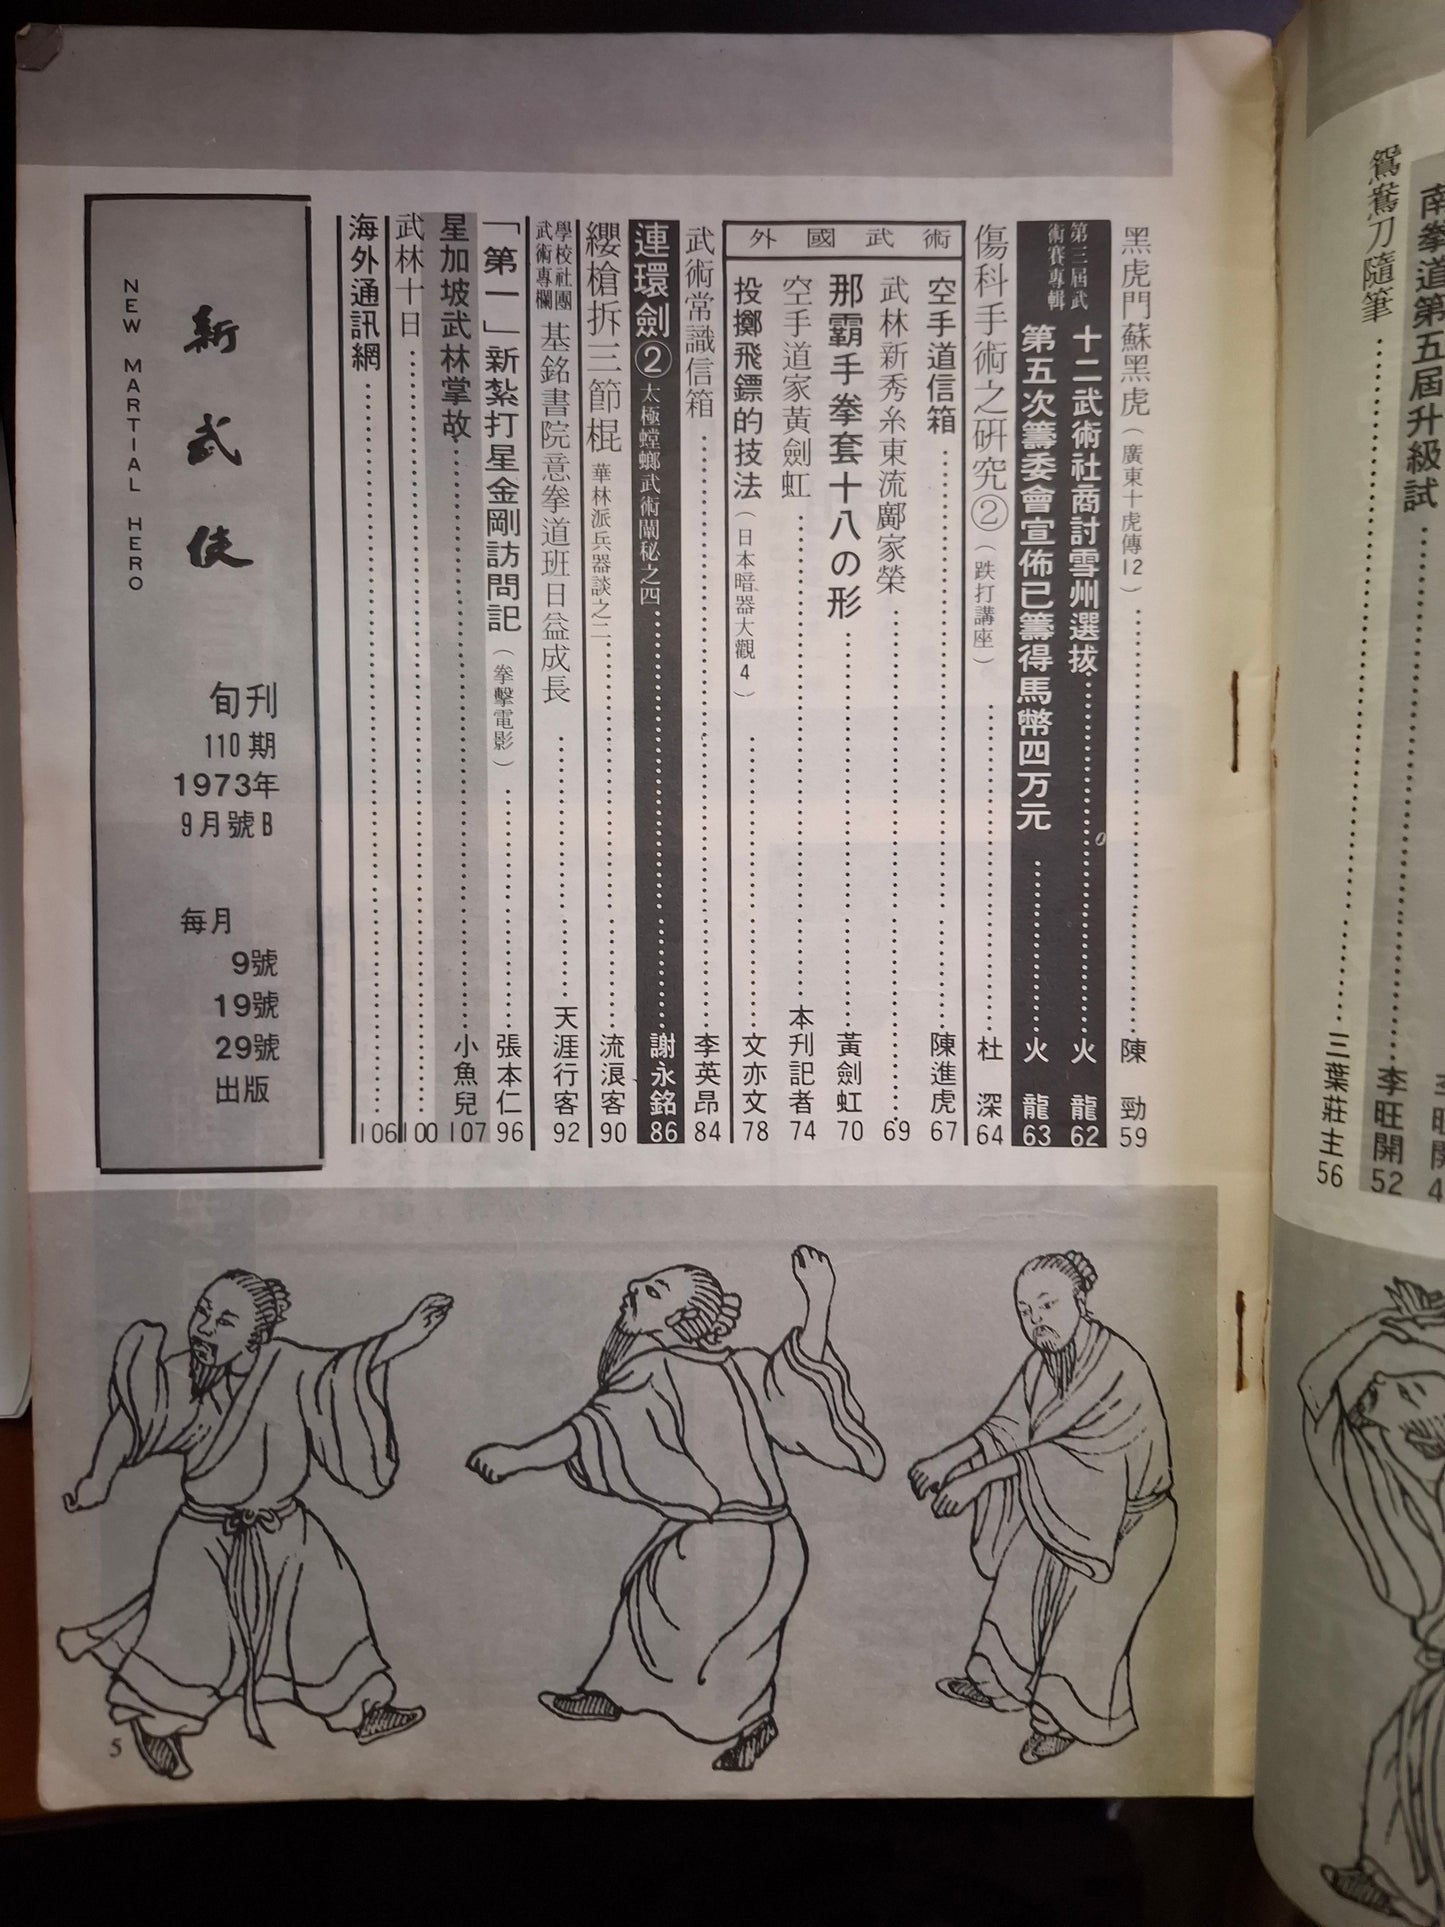 南拳道第五屆升級試
李旺開 52
鴛鴦刀隨筆
三葉莊主 56
黑虎門蘇黑虎（廣東十虎傳12）
陳勁 59
第三屆武術賽專輯
十二武術社商討雪州選拔
火龍 62
第五次籌委會宣佈已籌得馬幣四万元
火龍 63
傷科手術之研究②（跌打講座）
杜深 64
外國武術
空手道信箱
陳進虎 67
武林新秀糸東流鄺家榮
69
那霸手拳套十八の形
黃劍虹 70
空手道家黃劍虹
本刋記者 74
投擲飛鏢的技法（日本暗器大觀4）
文亦文 78
武術常識信箱
李英昂 84
連環劍②太極螳螂武術闡秘之四
謝永銘 86
纓槍拆三節棍 華林派兵器談之二
流浪客 90
學校社團武術專欄
基銘書院意拳道班日益成長
天涯行客 92
「第一」新紮打星金剛訪問記（拳擊電影）
張本仁 96
星加坡武林掌故
小魚兒 107
武林十日
100
海外通訊網
106
新武俠
NEW MARTIAL HERO
旬刊
110期
1973年
9月號B
每月
9號
19號
29號
出版
5